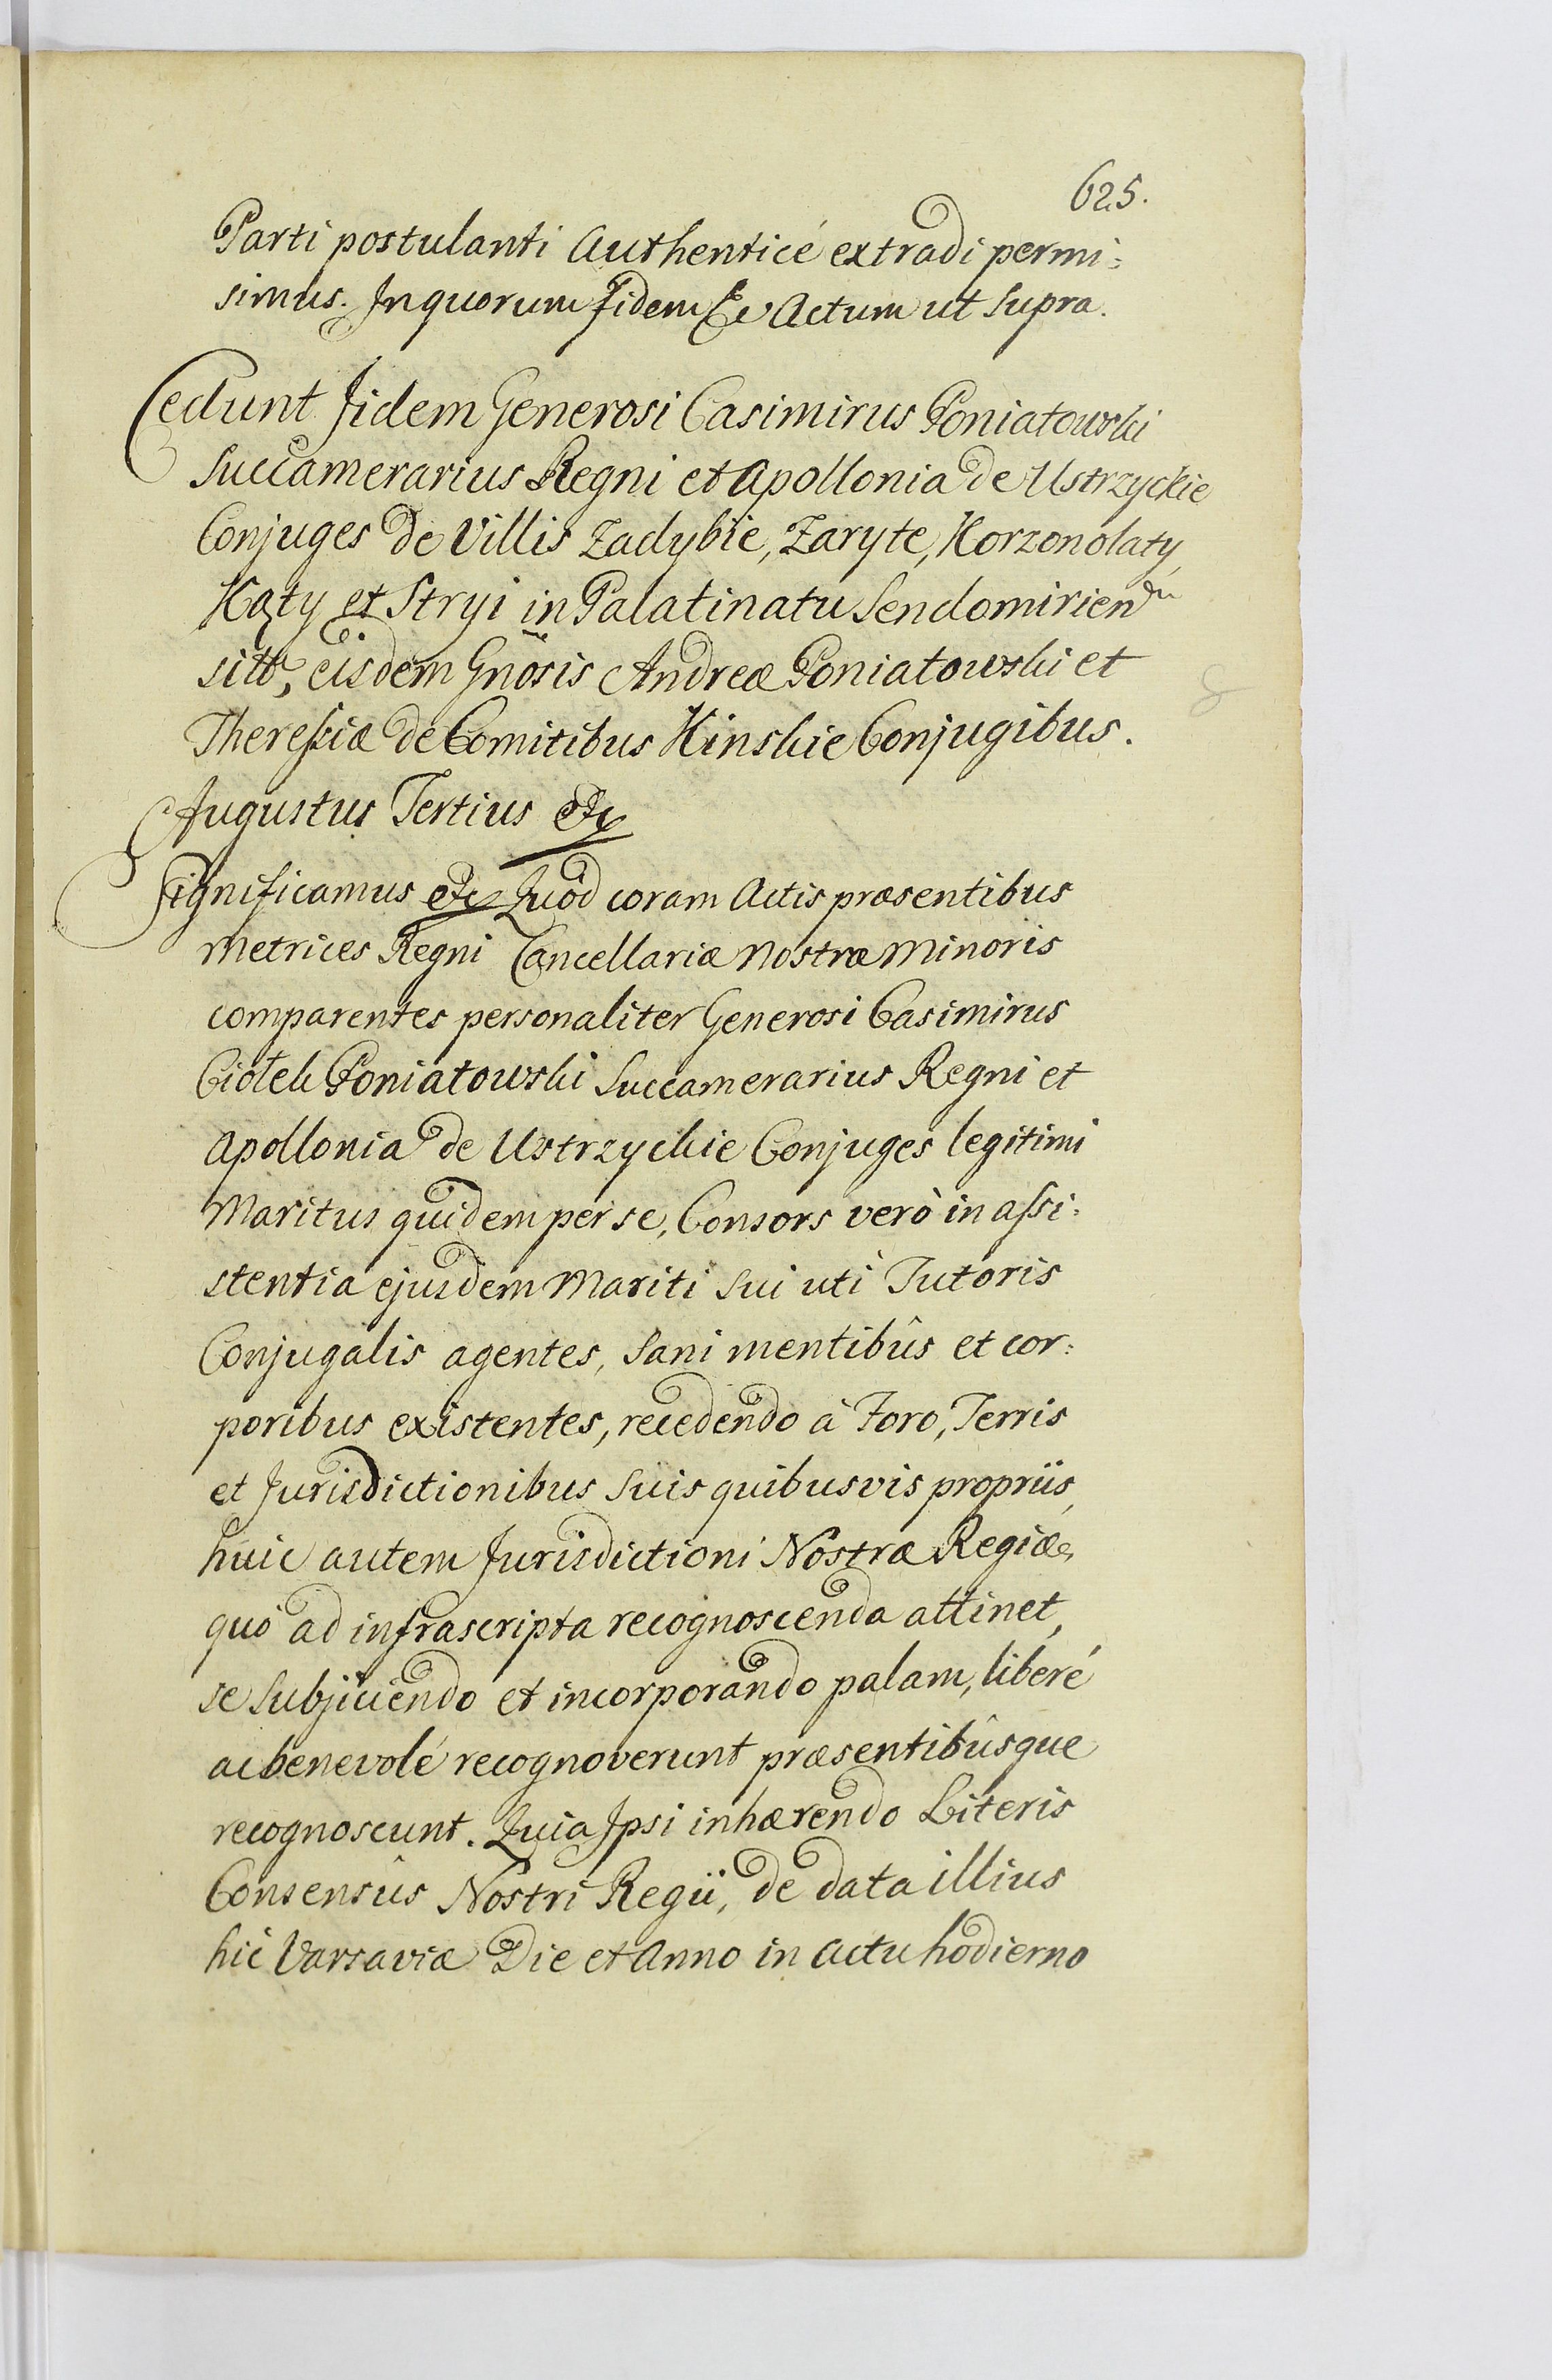 625.
Parti postulanti Authenticé extradi permi:
simus. In quorum fidem &c Actum ut supra.
Cedunt Iidem Generosi Casimirus Poniatowski
Succamerarius Regni et Apollonia de Ustrzyckie
Conjuges de Villis Zadybie, Zaryte, Korzonolaty,
Kąty et Stryi in Palatinatu Sendomirien
sitt, eisdem Gnosis Andreæ Poniatowski et
Theressiæ de Comitibus Kinskie Conjugibus.
Augustus Tertius &c
Significamus &c Quod coram Actis præsentibus
Metrices Regni Cancellariæ Nostræ Minoris
comparentes personaliter Generosi Casimirus
Ciołek Poniatowski Succamerarius Regni et
Apollonia de Ustrzyckie Conjuges legitimi
Maritus quidem per se, Consors verò in assi:
stentia ejusdem Mariti sui uti Tutoris
Conjugalis agentes, sani mentibûs et cor:
poribus existentes, recedendo à Foro, Terris
et Jurisdictionibus suis quibusvis propriis,
huic autem Jurisdictioni Nostræ Regiæ,
quó ad infrascripta recognoscenda attinet,
se subjiciendo et incorporando palam, liberé
ac benevolé recognoverunt præsentibûsque
recognoscunt. Quia Ipsi inhærendo Literis
Consensûs Nostri Regii, de data illius
hic Varsaviæ Die et Anno in Actu hodierno